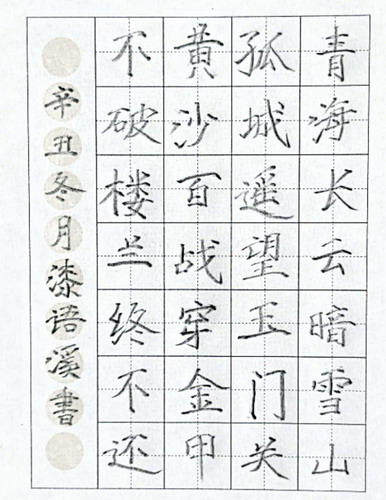 青海长云暗雪山
孤城遥望玉门关
黄沙百战穿金甲
不破楼兰终不还
辛丑冬月漆语溪書